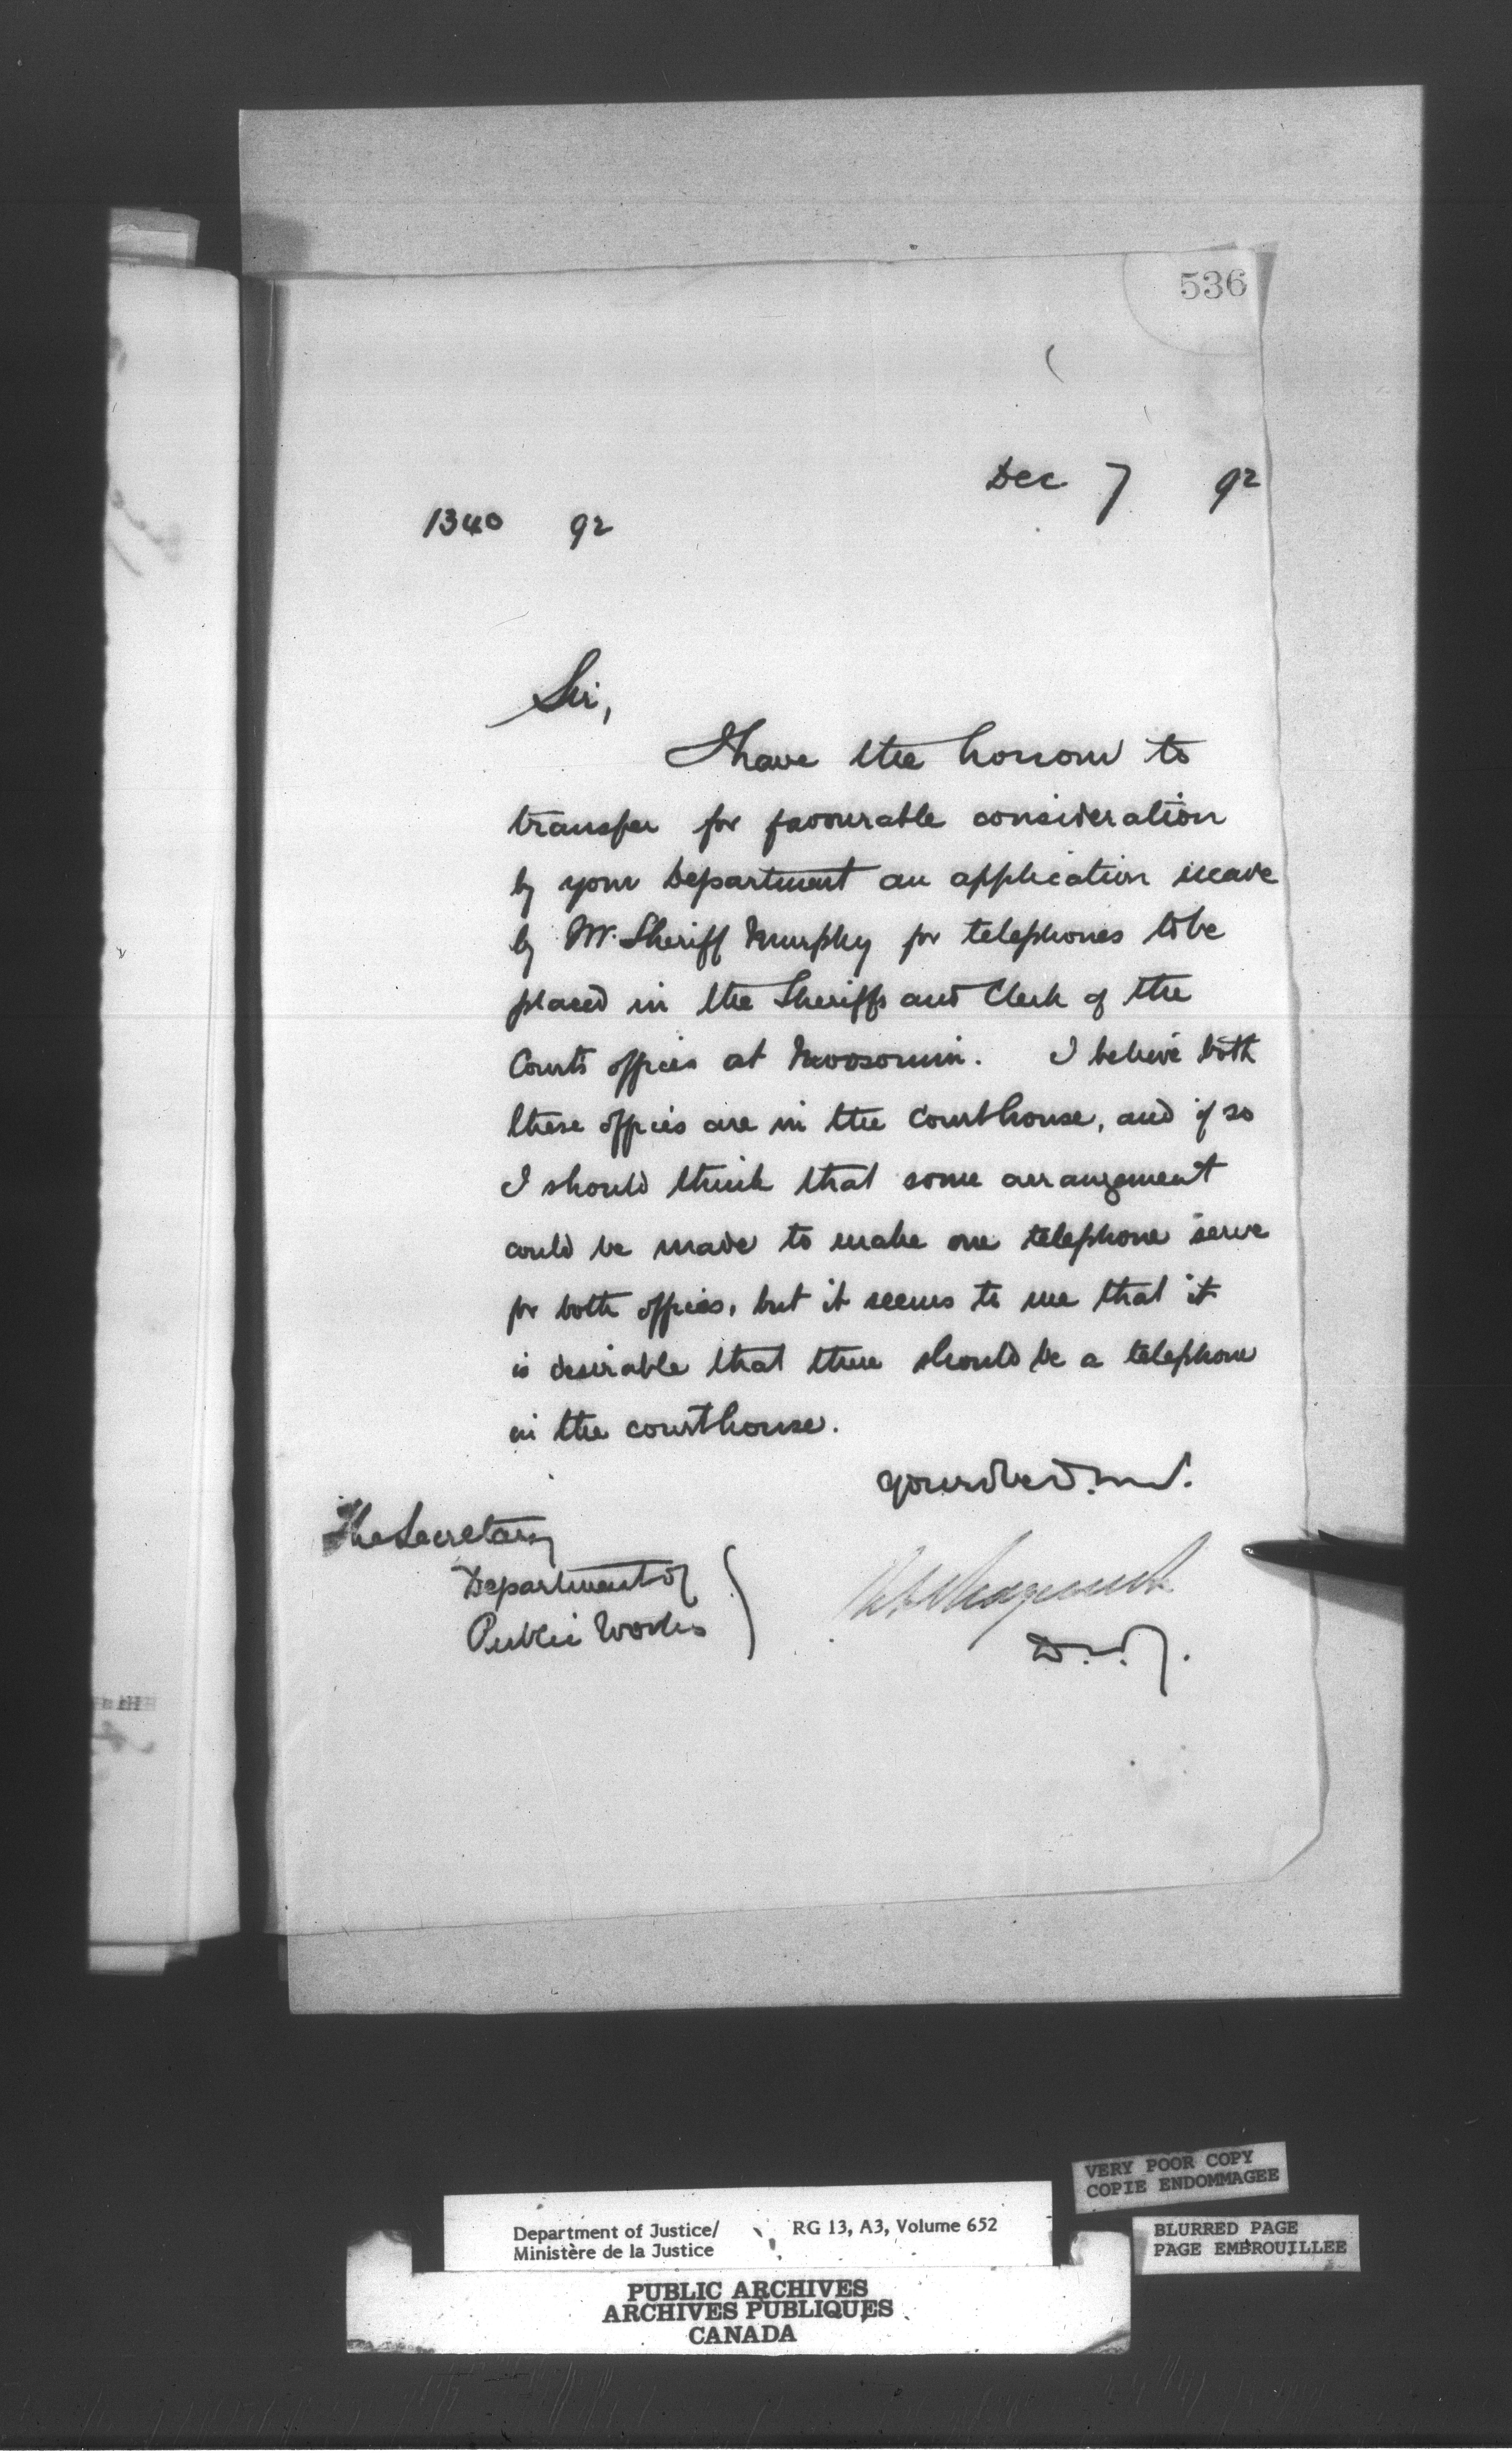 536
Dec 7 92
1340 92
Sir,
I have the honour to
transfer for favourable consideration
by your Department an application made
by Mr. Sheriff Murphy for telephones to be
placed in the Sheriffs and Clerk of the
Courts offices at Moosomin. I believe both
these offices are in the Courthouse, and if so
I should think that some arrangement
could be made to make one telephone serve
for both offices, but it seems to me that it
is desirable that there should be a telephone
in the courthouse.
The Secretary
Department of
Public Works
D.M.J.
VERY POOR COPY
COPIE ENDOMMAGEE
Department of Justice/ RG 13, A3, Volume 652
Ministère de la Justice
BLURRED PAGE
PAGE EMBROUILLEE
PUBLIC ARCHIVES
ARCHIVES PUBLIQUES
CANADA